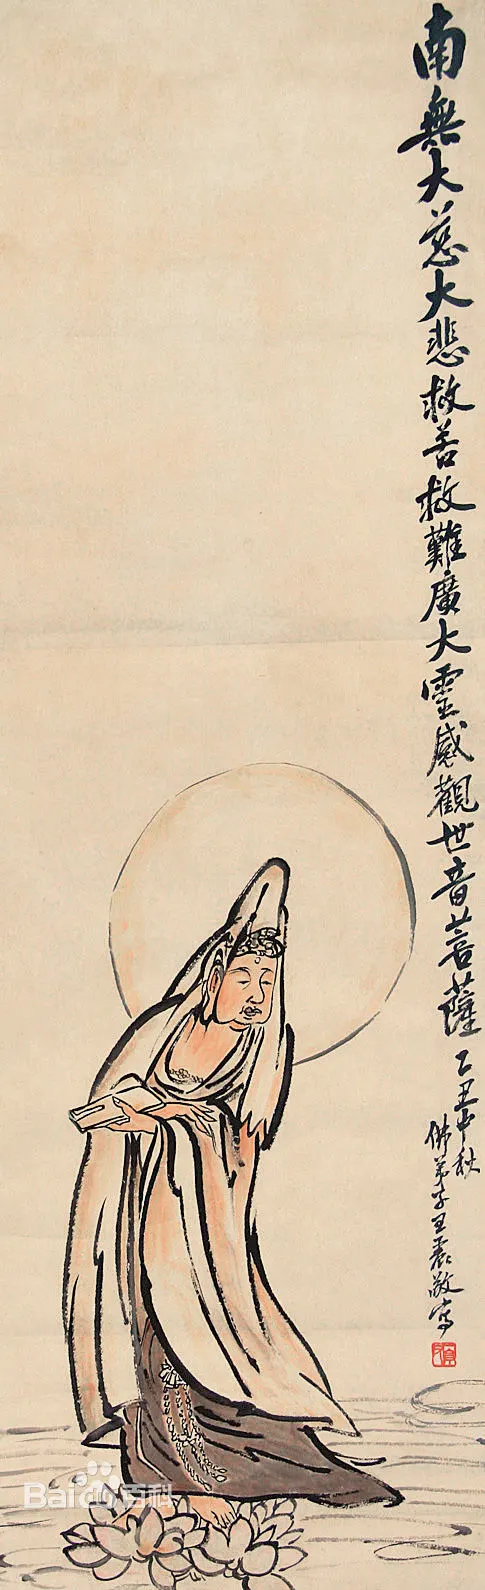 南無大慈大悲救苦救難廣大靈感觀世音菩薩
乙丑中秋
佛弟子王震敬寫
Baidu百科